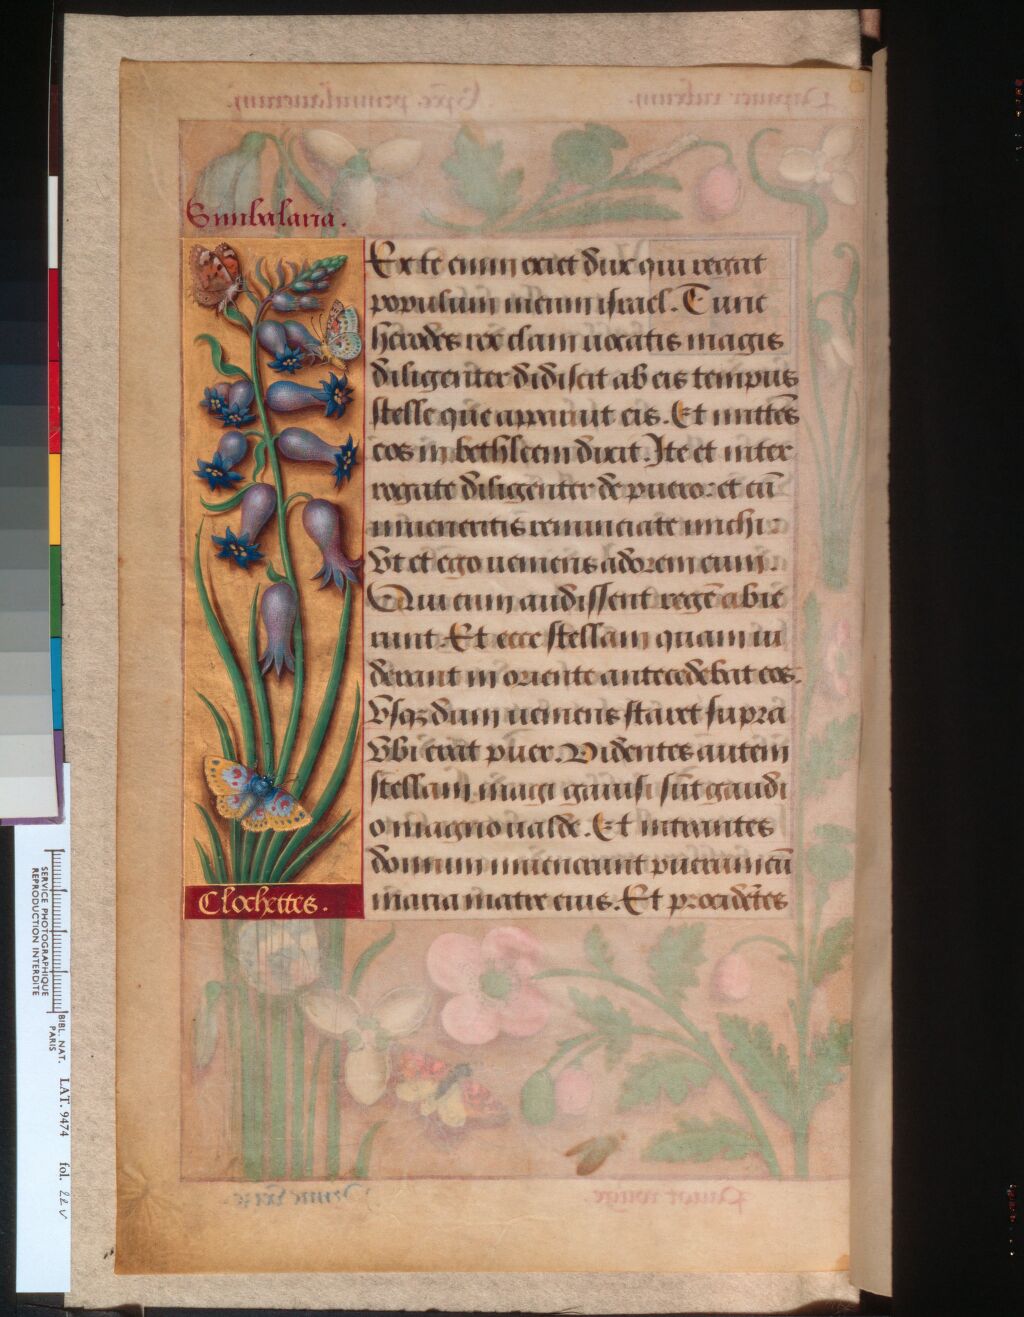 Simbalaria.
Ex te enim exiet dux qui regat
populum meum israel. Tunc
herodes rex clam uocatis magis
diligenter didiscit ab eis tempus
stelle que apparuit eis. Et mittẽs
eos in bethleem dixit. Ite et inter
rogate diligenter de puero: et cũ
inueneritis renunciate michi:
Vt et ego ueniens adorem eum.
Qui cum audissent regẽ abie
runt. Et ecce stellam quam ui
derant in oriente antecedebat eos.
Vsqꝫ dum ueniens staret supra
Vbi erat puer. Videntes autem
stellam magi gauisi sũt gaudi
o magno ualde. Et intrantes
domum inuenerunt puerum cũ
maria matre eius. Et procidẽtes
Clochettes.
SERVICE PHOTOGRAPHIQUE
REPRODUCTION INTERDITE
BIBL. NAT.
PARIS
LAT. 9474 fol. 22 v